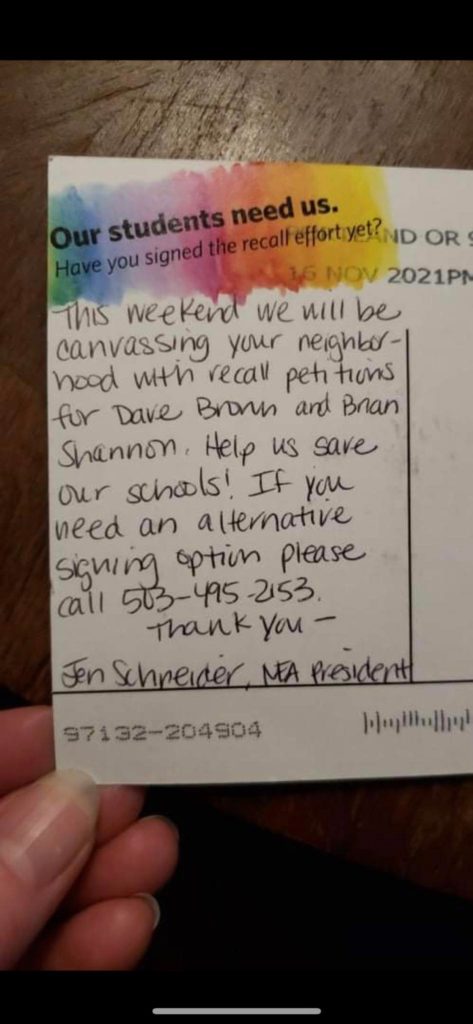 Our students need us.
Have you signed the recall effort yet?
AND OR S
16 NOV 2021PM
This weekend we will be
canvassing your neighbor-
hood with recall petitions
for Dave Brown and Brian
Shannon. Help us save
our schools! If you
need an alternative
signing option please
call 503-495-2153.
Thank you -
Jen Schneider, NEA President
97132-204904